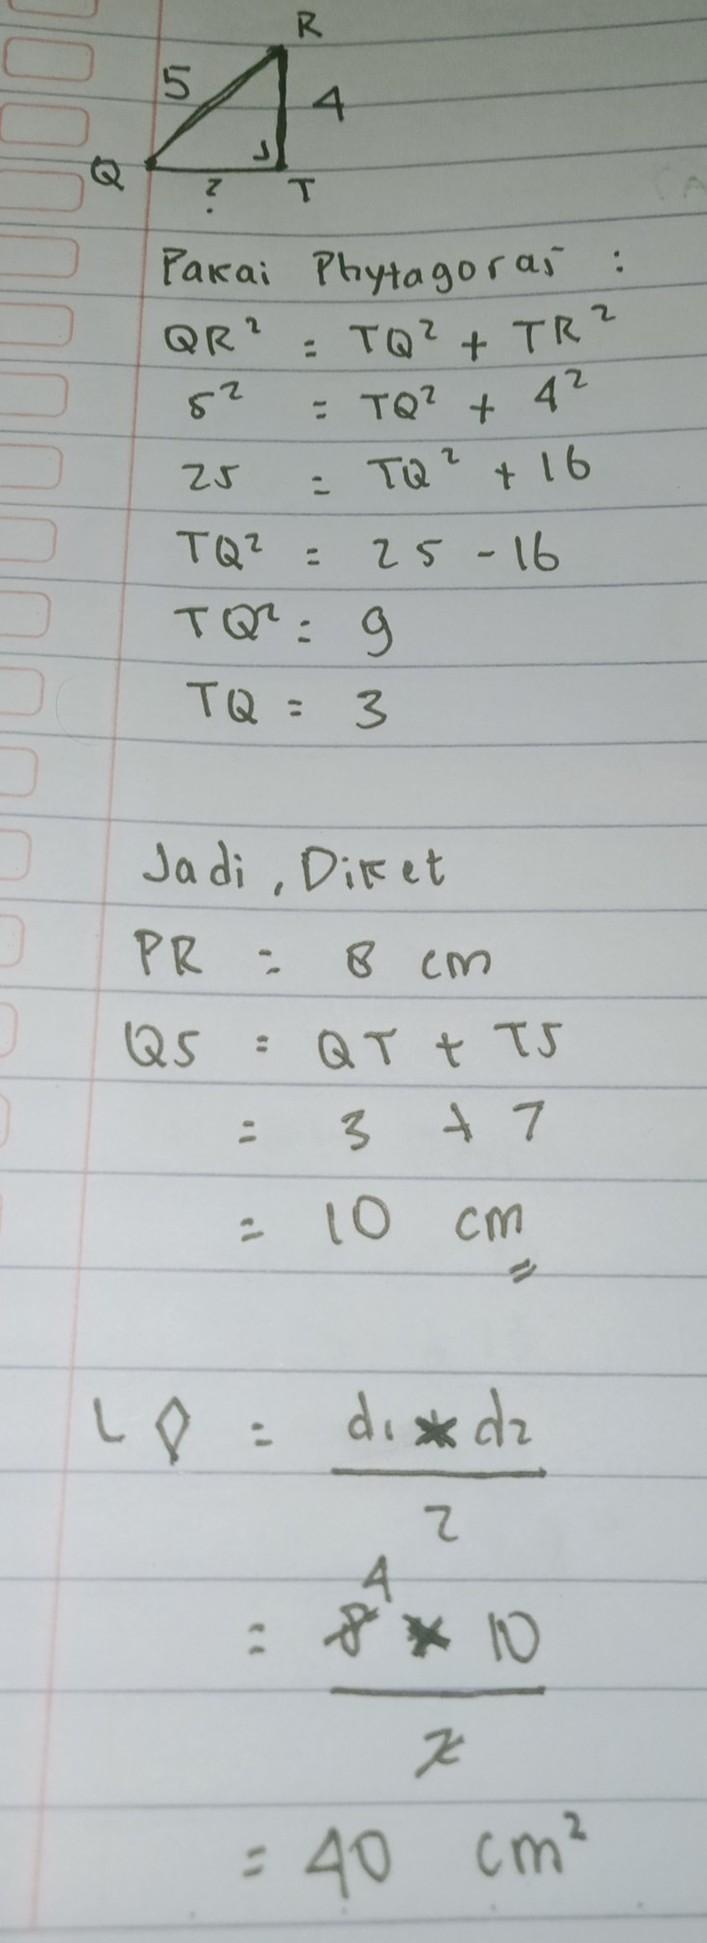 R
5
4
Q
?
T
Pakai Phytagoras :
QR² = TQ² + TR²
5² = TQ² + 4²
25 = TQ² + 16
TQ² = 25 - 16
TQ² = 9
TQ = 3
Jadi, Diket
PR = 8 cm
QS = QT + TS
= 3 + 7
= 10 cm
L ◊ = d1 * d2
2
4
= 8 * 10
2
= 40 cm²